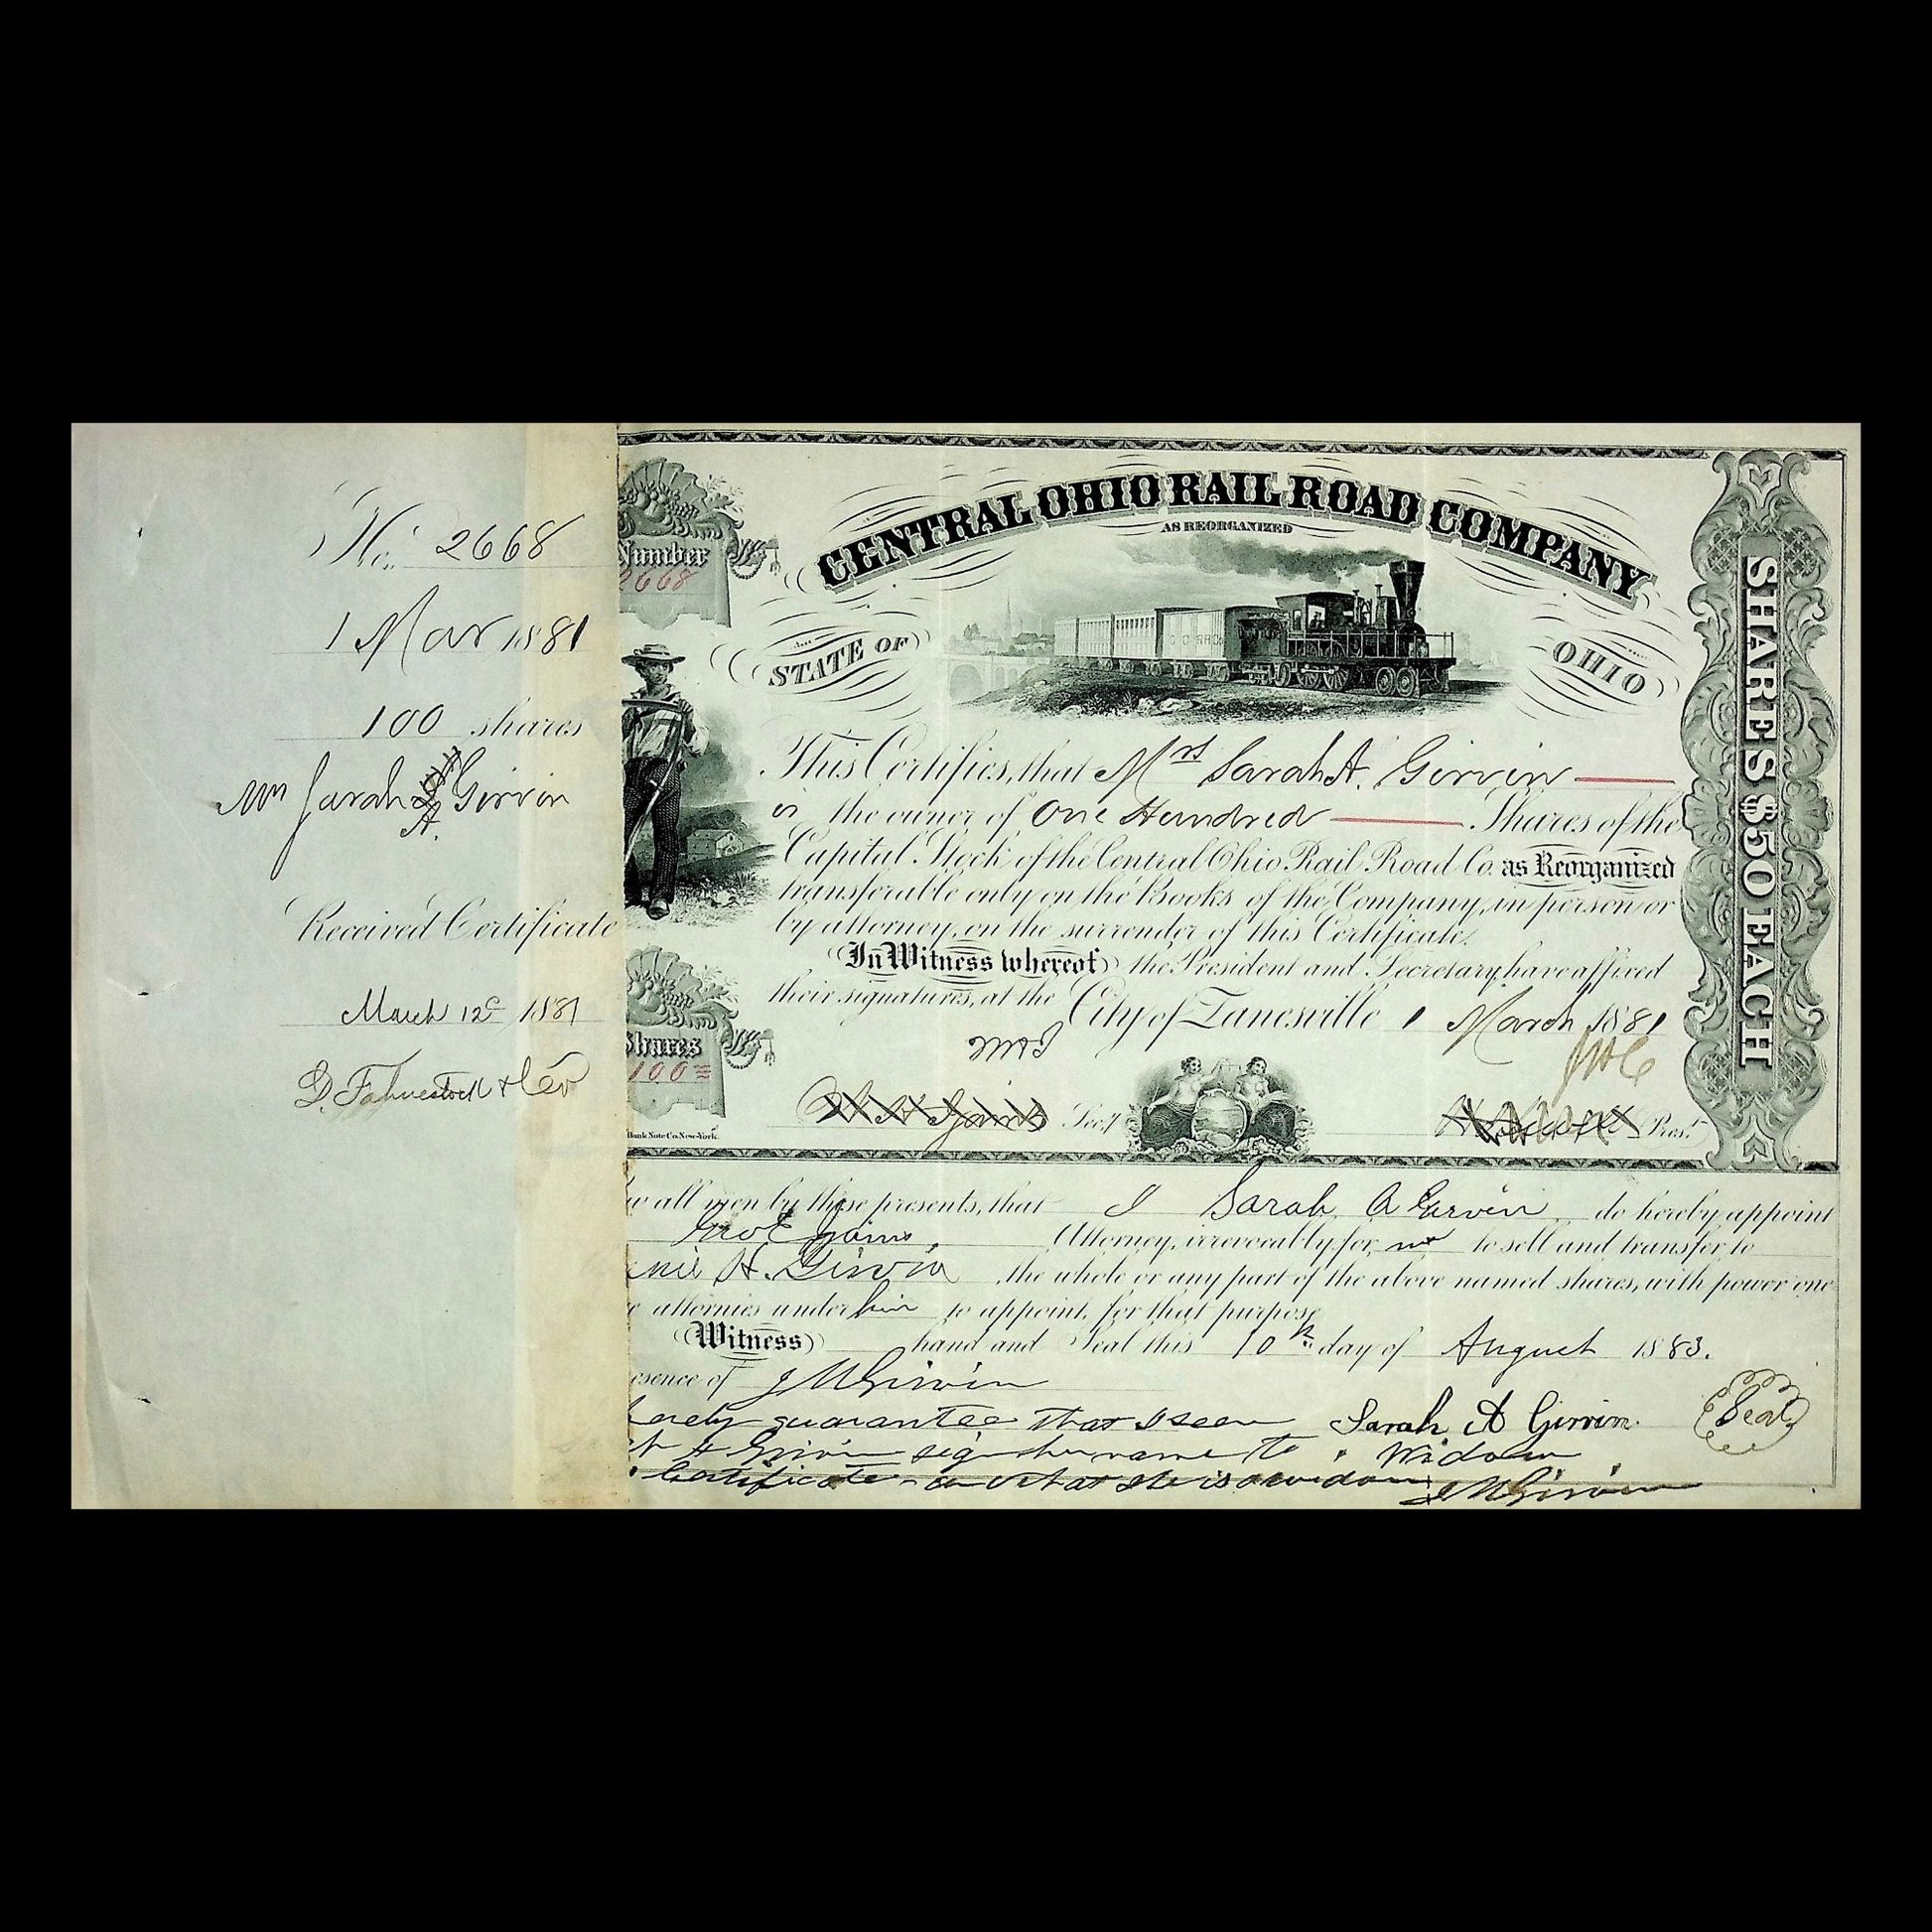 No. 2668
1 Mar 1881
100 shares
Mrs Sarah Girvin
A.
Received Certificate
March 12 1881
D. Fahnestock & Co
Number
2668
CENTRAL OHIO RAIL ROAD COMPANY
AS REORGANIZED
STATE OF OHIO
SHARES $50 EACH
This Certifies, that Mrs Sarah A. Girvin
is the owner of One Hundred Shares of the
Capital Stock of the Central Ohio Rail Road Co. as Reorganized
transferable only on the Books of the Company, in person or
by attorney, on the surrender of this Certificate.
In Witness whereof the President and Secretary have affixed
their signatures, at the City of Zanesville 1 March 1881
Shares
100
Sec.y Pres.t
Bank Note Co. New-York.
all men by these presents, that I Sarah A Girvin do hereby appoint
Attorney, irrevocably, for me to sell and transfer to
H. Girvin the whole or any part of the above named shares, with power one
attornies under him to appoint, for that purpose
Witness hand and Seal this 10th day of August 1883.
esence of J M Girvin
guarantee that I seen Sarah A Girvin Seal
Girvin sign her name to Widow
Certificate that she is a widow J M Girvin